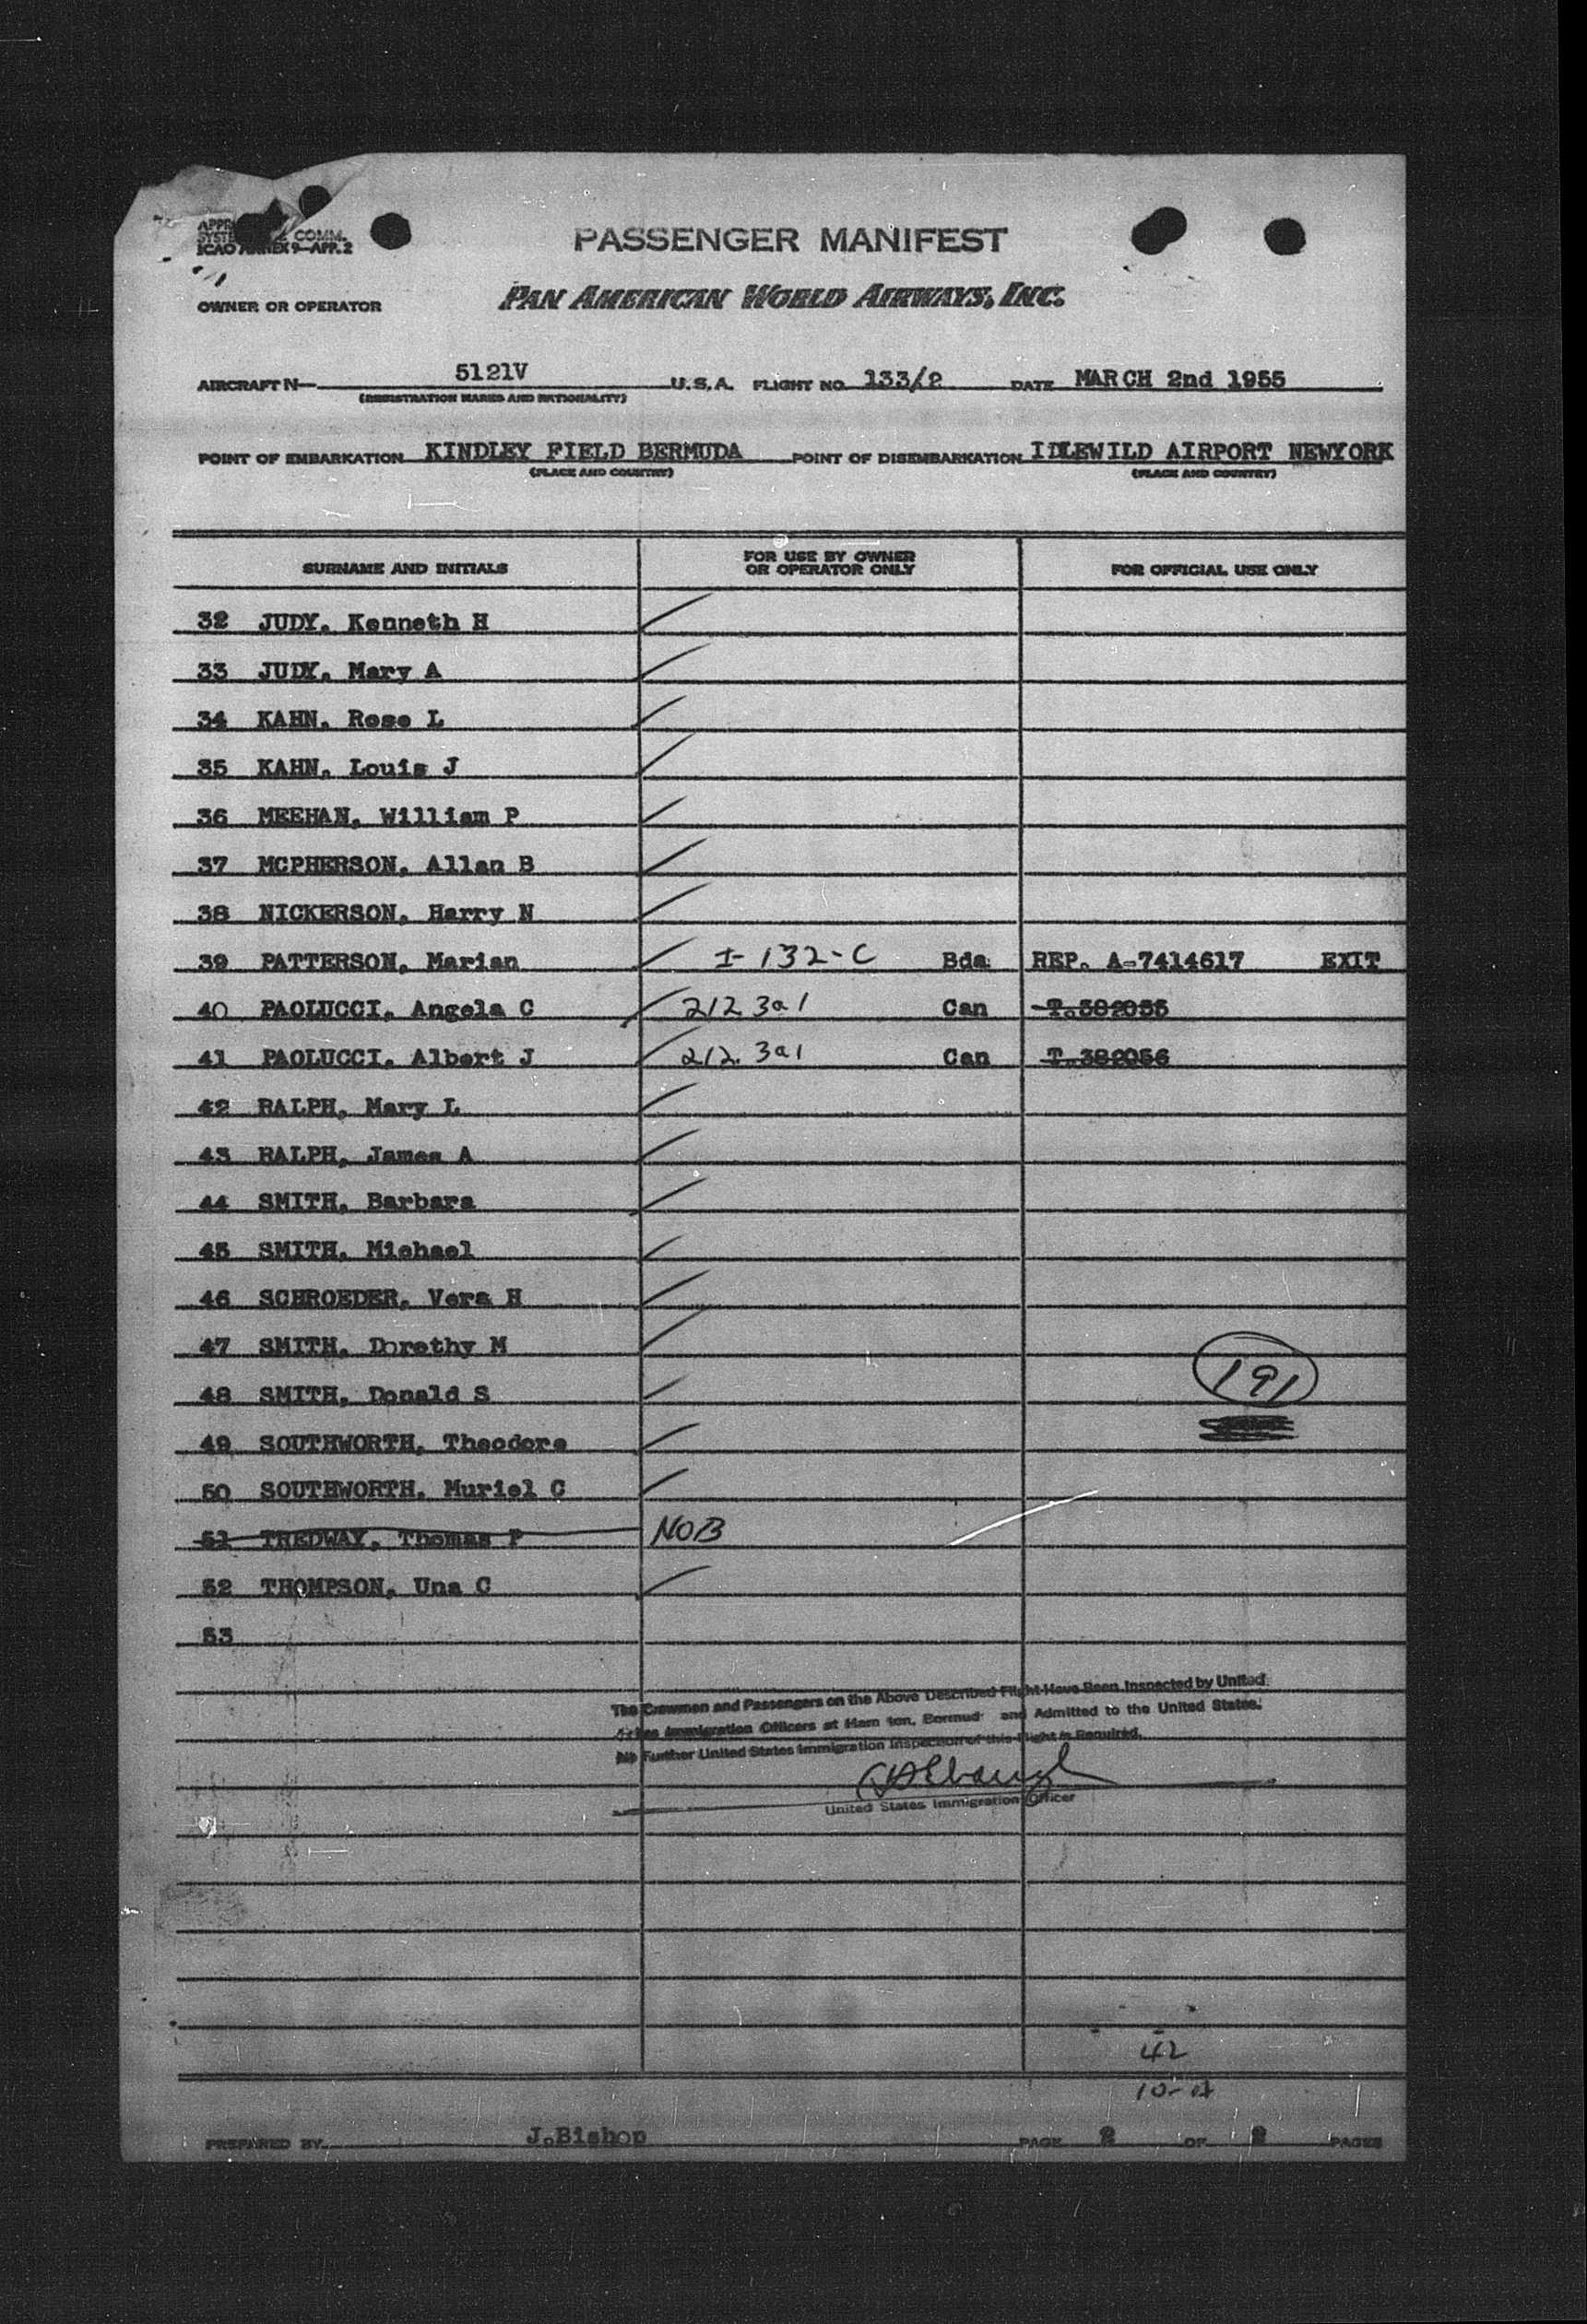 COMM.
ICAO ANNEX 9—APP. 2
PASSENGER MANIFEST
OWNER OR OPERATOR PAN AMERICAN WORLD AIRWAYS, INC.
AIRCRAFT N— 5121V U.S.A. FLIGHT NO. 133/2 DATE MARCH 2nd 1955
(REGISTRATION MARKS AND NATIONALITY)
POINT OF EMBARKATION KINDLEY FIELD BERMUDA POINT OF DISEMBARKATION IDLEWILD AIRPORT NEWYORK
(PLACE AND COUNTRY) (PLACE AND COUNTRY)
SURNAME AND INITIALS FOR USE BY OWNER OR OPERATOR ONLY FOR OFFICIAL USE ONLY
32 JUDY, Kenneth H
33 JUDY, Mary A
34 KAHN, Rose L
35 KAHN, Louis J
36 MEEHAN, William P
37 MCPHERSON, Allan B
38 NICKERSON, Harry N
39 PATTERSON, Marian I-132-C Bda REP. A-7414617 EXIT
40 PAOLUCCI, Angela C 212.3a1 Can T.382055
41 PAOLUCCI, Albert J 212.3a1 Can T.382056
42 RALPH, Mary L
43 RALPH, James A
44 SMITH, Barbara
45 SMITH, Michael
46 SCHROEDER, Vera H
47 SMITH, Dorothy M
191
48 SMITH, Donald S
49 SOUTHWORTH, Theodore
50 SOUTHWORTH, Muriel C
51 TREDWAY, Thomas P NOB
52 THOMPSON, Una C
53
The Crewmen and Passengers on the Above Described Flight Have Been Inspected by United
Immigration Officers at Ham ton, Bermud and Admitted to the United States.
No Further United States Immigration Inspection of this Flight is Required.
United States Immigration Officer
42
PREPARED BY J.Bishop PAGE 2 OF 2 PAGES